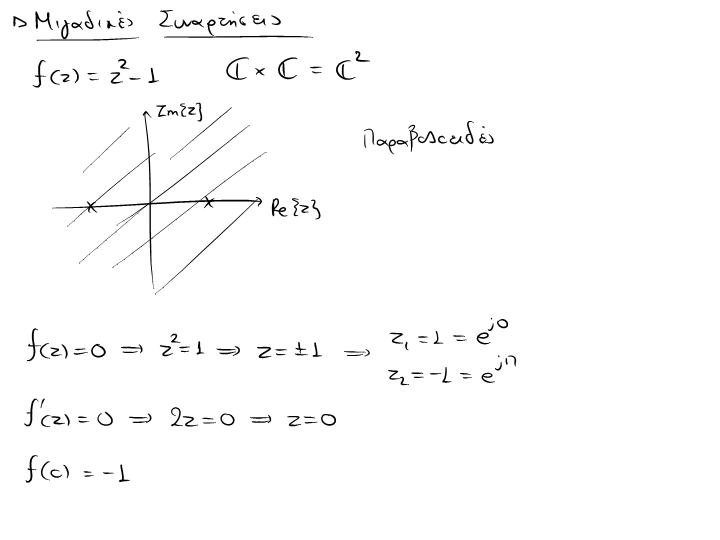 ▷ Μιγαδικές Συναρτήσεις
f(z) = z² - 1   ℂ × ℂ = ℂ²
Im{z}
Παραβολοειδές
Re{z}
f(z) = 0 ⇒ z² = 1 ⇒ z = ±1 ⇒ z₁ = 1 = e^{j0}
z₂ = -1 = e^{jπ}
f'(z) = 0 ⇒ 2z = 0 ⇒ z = 0
f(0) = -1